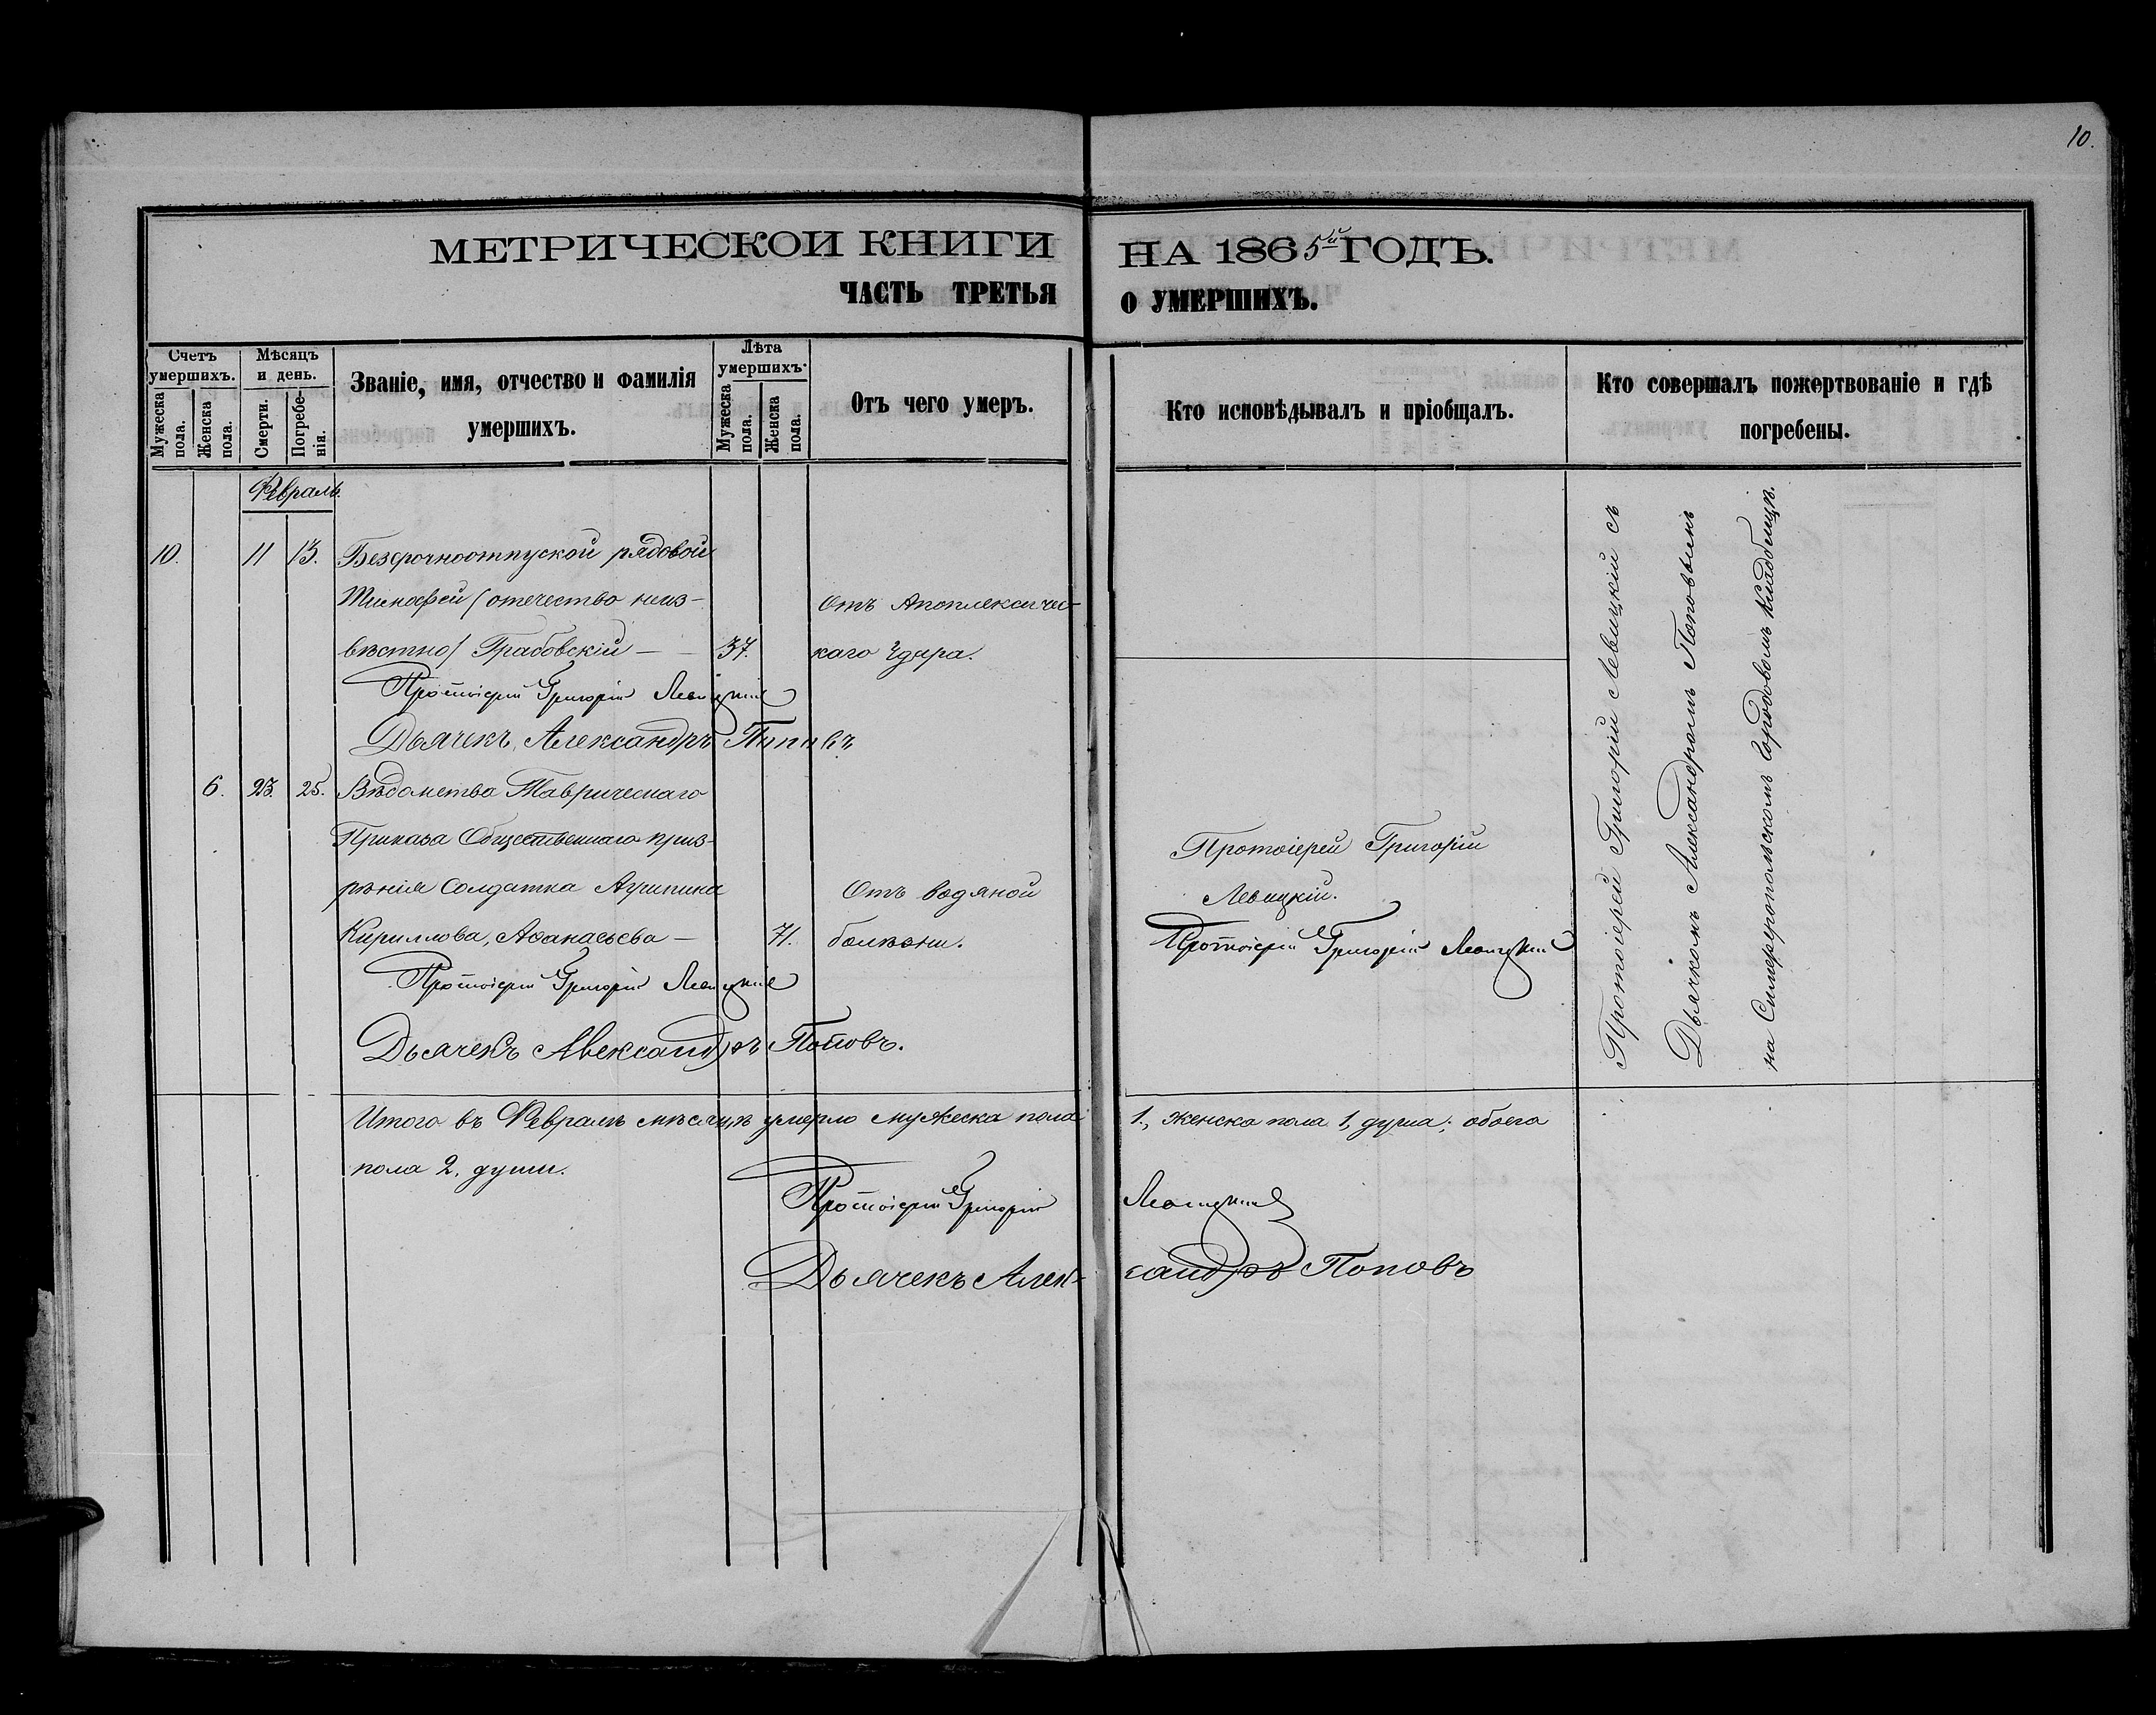 10.
МЕТРИЧЕСКОЙ КНИГИ НА 1865й ГОДЪ.
ЧАСТЬ ТРЕТЬЯ О УМЕРШИХЪ.
Счетъ умершихъ.
Мужеска пола.
Женска пола.
Мѣсяцъ и день.
Смерти.
Погребенія.
Званіе, имя, отчество и фамилія умершихъ.
Лѣта умершихъ.
Мужеска пола.
Женска пола.
Отъ чего умеръ.
Кто исповѣдывалъ и пріобщалъ.
Кто совершалъ пожертвованіе и гдѣ погребены.
Февраль.
10. 11 13. Безсрочноотпуской рядовой
Тимофей (отечество неиз- Отъ Апоплексичес-
вѣстно) Грабовскій — — 37. каго Удара.
Протоіерей Григорій Левицкій
Дьячекъ Александръ Поповъ
6. 23. 25. Вѣдомства Таврическаго
Приказа Общественнаго приз-
рѣнія Солдатка Агрипина Отъ водяной
Кириллова, Аѳанасьева — 71. болѣзни.
Протоіерей Григорій Левицкій
Дьячекъ Александръ Поповъ.
Протоіерей Григорій
Левицкій.
Протоіерей Григорій Левицкій
Протоіерей Григорій Левицкій съ
Дьячкомъ Александромъ Поповымъ
на Симферопольскомъ Городовомъ Кладбищѣ.
Итого въ Февралѣ мѣсяцѣ умерло мужеска пола 1., женска пола 1, душа; обоего
пола 2. души.
Протоіерей Григорій Левицкій
Дьячекъ Александръ Поповъ